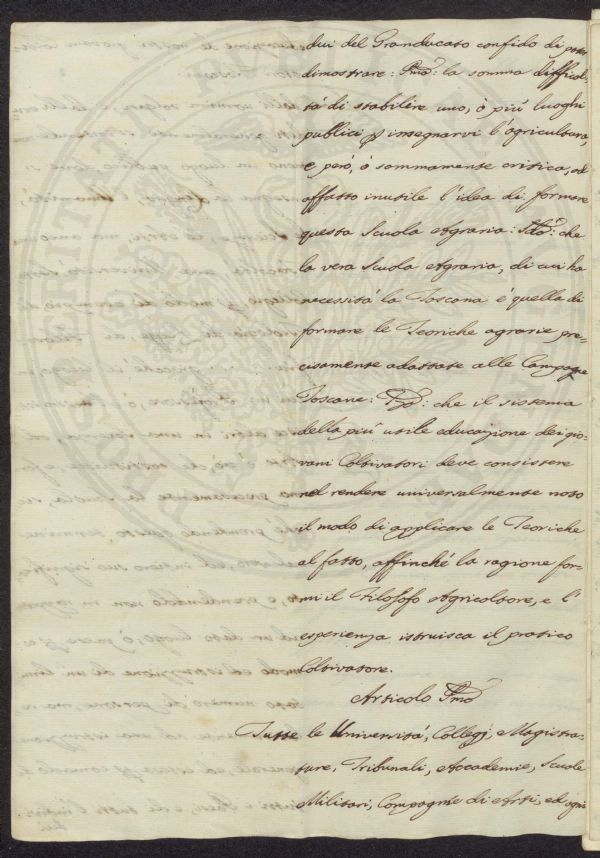 dui del Granducato confido di poter
dimostrare: Pmo: la somma difficol-
tà di stabilire uno, ò più luoghi
publici p insegnarvi l'agricultura,
e però, ò sommamente critica, od
affatto inutile l'idea di formare
questa Scuola Agraria: Sdo: che
la vera Scuola Agraria, di cui ha
necessità la Toscana è quella di
formare le Teoriche agrarie pre-
cisamente adattate alle Campagne
Toscane: che il sistema
della più utile educazione dei gio-
vani Coltivatori deve consistere
nel rendere universalmente noto
il modo di applicare le Teoriche
al fatto, affinché la ragione for-
mi il Filosofo Agricoltore, e l'
esperienza istruisca il pratico
Coltivatore.
Articolo Pmo
Tutte le Università, Collegj, Magistra-
ture, Tribunali, Accademie, Scuole
Militari, Compagnie di Arti, ed ogni